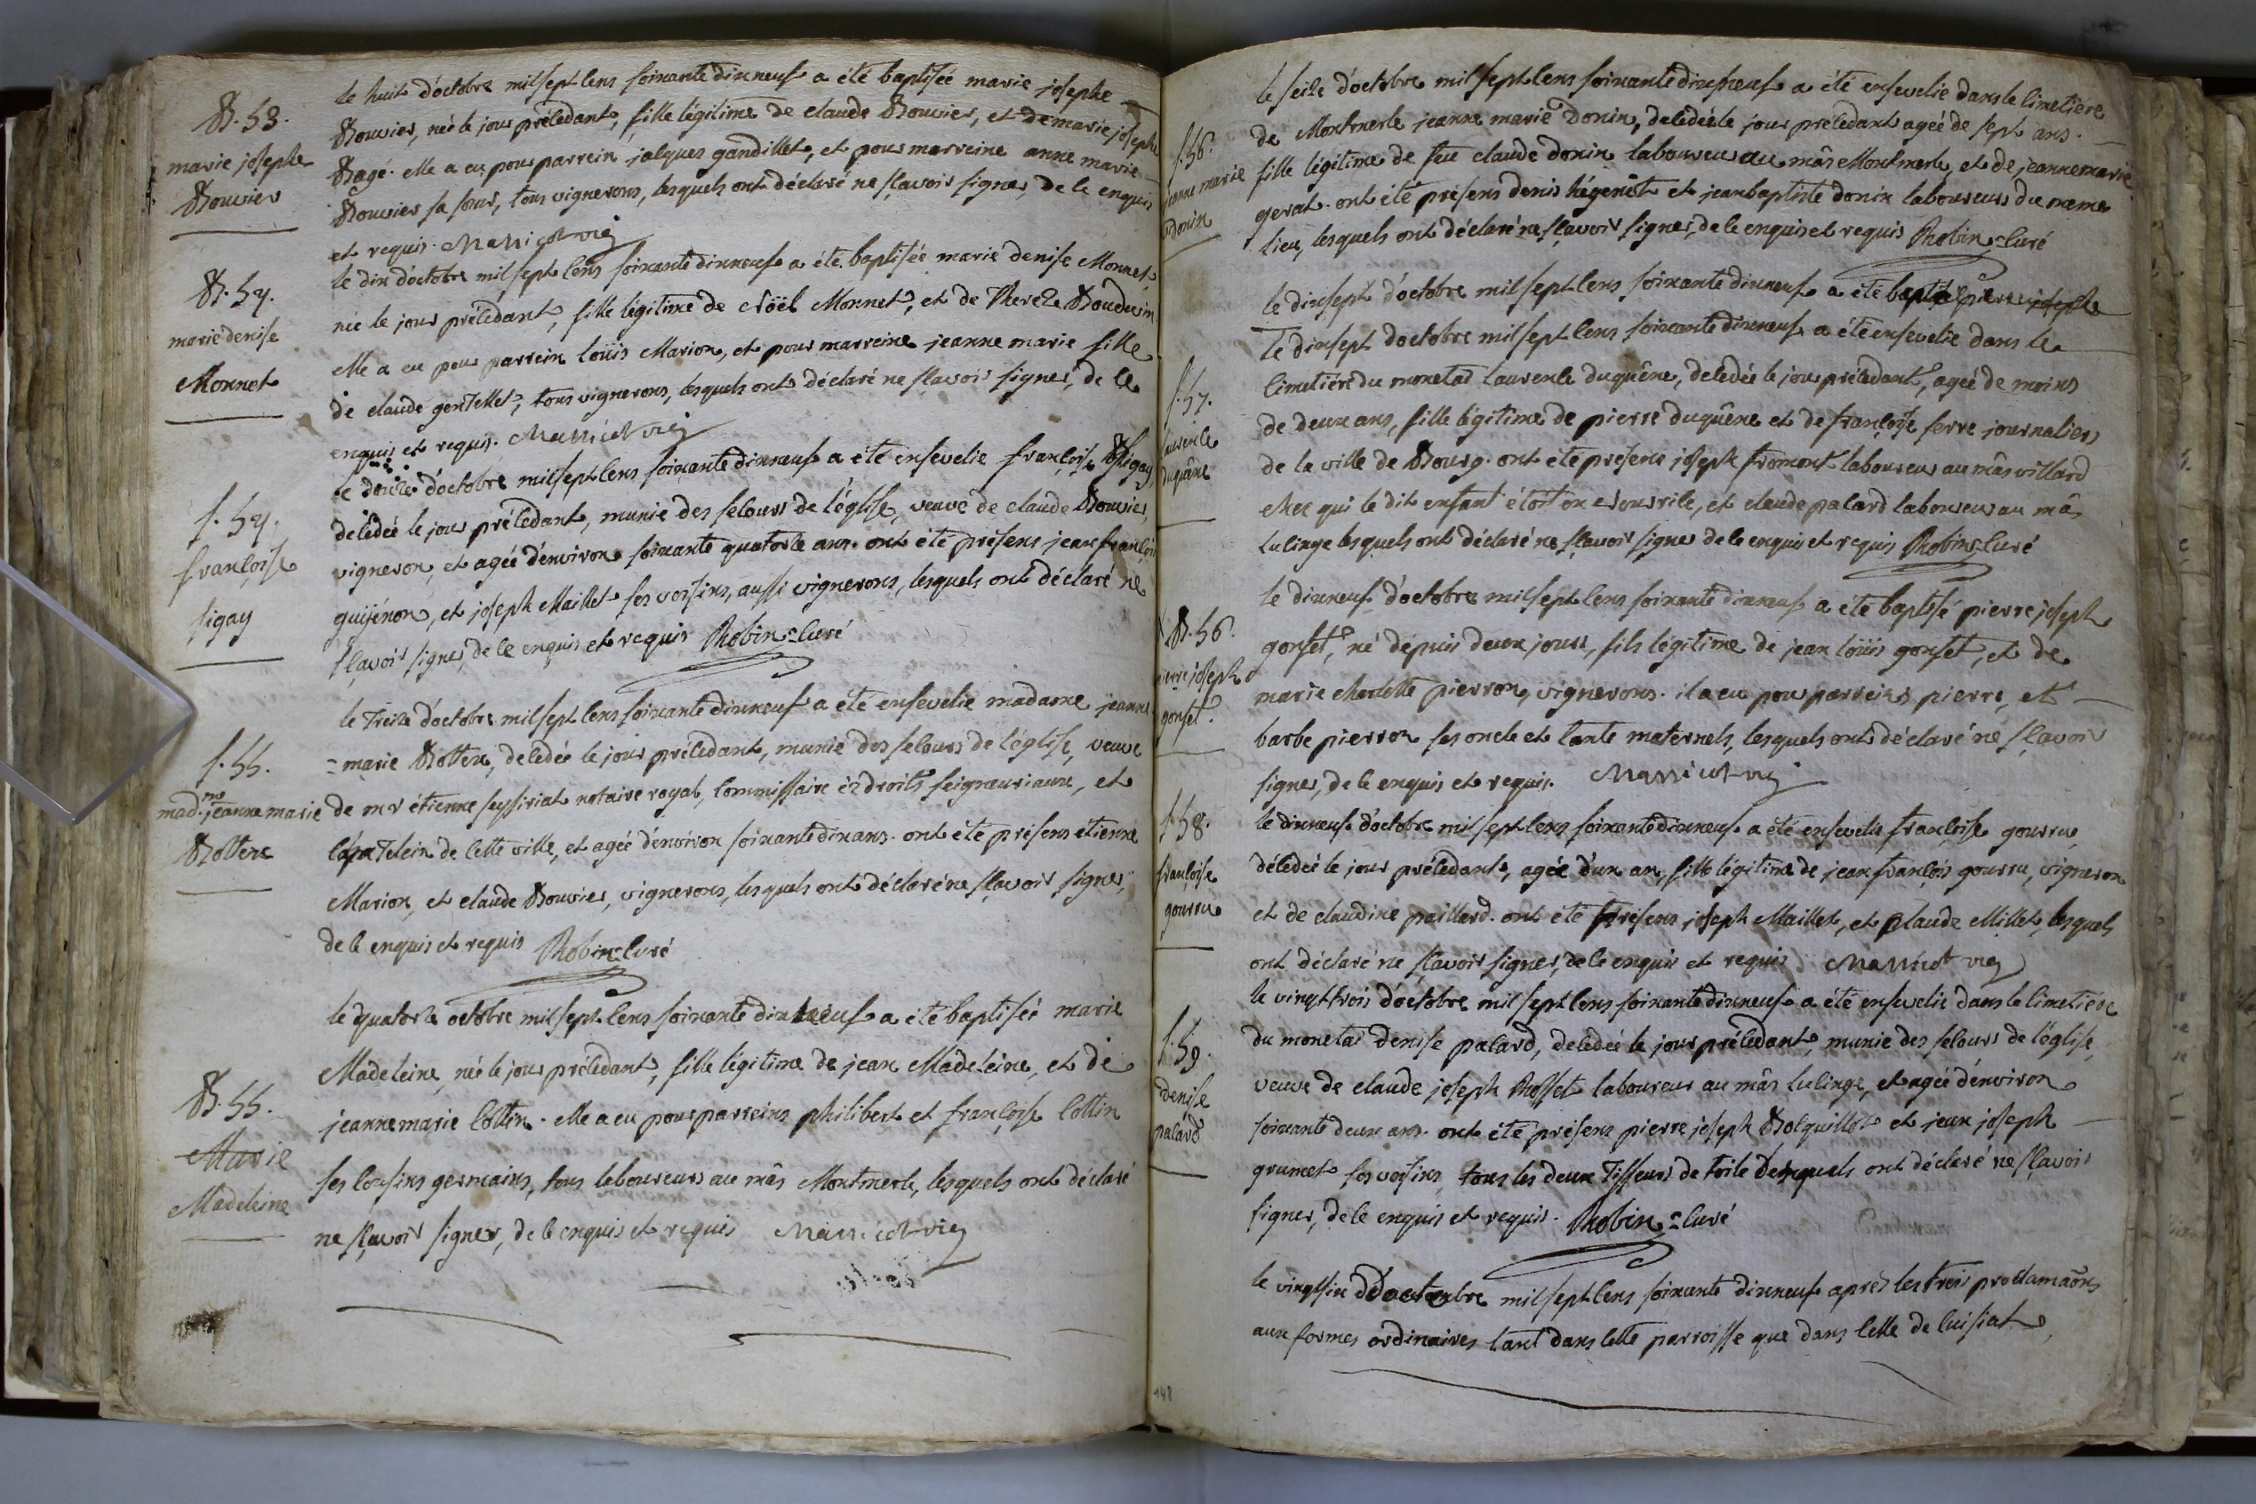 B. 53.
marie josephe
Bouvier
le huit d'octobre mil sept cens soixante dixneuf a été baptisée marie josephe
Bouvier, née le jour précédant, fille légitime de claude Bouvier, et de marie josephe
Bagé. elle a eu pour parrein jacques gandillet, et pour marreine anne marie
Bouvier sa sœur, tous vignerons, lesquels ont déclaré ne sçavoir signer, de ce enquis
et requis. Marricot vic
B. 54.
marie denise
Monnet
le dix d'octobre mil sept cens soixante dixneuf a été baptisée marie denise Monnet,
née le jour précédant, fille légitime de Nöël Monnet, et de Therese Boudevin
elle a eu pour parrein loüis Marion, et pour marreine jeanne marie fille
de claude gentellet, tous vignerons, lesquels ont déclaré ne sçavoir signer, de ce
enquis et requis. Marricot vic
S. 54.
françoise
figay
le douze d'octobre mil sept cens soixante dixneuf a été ensevelie françoise figay,
décédée le jour précédant, munie des secours de l'église, veuve de claude Bouvier,
vigneron, et agée d'environ soixante quatorze ans. ont été présens jean françois
guijénon, et joseph Maillet ses voisins, aussi vignerons, lesquels ont déclaré ne
sçavoir signer, de ce enquis et requis Robin=curé
S. 55.
mad.me jeanne marie
Bottex
le treize d'octobre mil sept cens soixante dixneuf a été ensevelie madame jeanne
=marie Bottex, décédée le jour précédant, munie des secours de l'église, veuve
de mr étienne seyssiriat notaire royal, commissaire ez droits seigneuriaux, et
chatelein de cette ville, et agée d'environ soixante dix ans. ont été présens étienne
Marion, et claude Bouvier, vignerons, lesquels ont déclaré ne sçavoir signer,
de ce enquis et requis Robin=curé
B. 55.
Marie
Madeleine
le quatorze octobre mil sept cens soixante dixneuf a été baptisée marie
Madeleine, née le jour précédant, fille légitime de jean Madeleine, et de
jeanne marie Cottin. elle a eu pour parreins philibert et françoise Cottin
ses cousins germains, tous laboureurs au mâs Montmerle, lesquels ont déclaré
ne sçavoir signer, de ce enquis et requis Marricot vic
S. 56.
jeanne marie
donin
le seize d'octobre mil sept cens soixante dixneuf a été ensevelie dans le cimetière
de Montmerle jeanne marie Donin, décédée le jour précédant agée de sept ans.
fille légitime de feu claude donin laboureur au mâs Montmerle, et de jeanne marie
gerat. ont été présens denis hégenot et jean baptiste donin laboureurs du même
lieu, lesquels ont déclaré ne sçavoir signer, de ce enquis et requis Robin=curé
le dixsept d'octobre mil sept cens soixante dixneuf a été baptisé pierre joseph
S. 57.
laurence
duquêne
le dixsept d'octobre mil sept cens soixante dixneuf a été ensevelie dans le
cimetière du monetai laurence duquêne, décédée le jour précédant, agée de moins
de deux ans, fille légitime de pierre duquêne et de françoise ferre journaliers
de la ville de Bourg. ont été présens joseph fromont laboureur au mâs villard
chez qui le dit enfant étoit en nourrice, et claude palard laboureur au mâs
lulinge lesquels ont déclaré ne sçavoir signer de ce enquis et requis Robin=curé
B. 56.
pierre joseph
gonset.
le dixneuf d'octobre mil sept cens soixante dixneuf a été baptisé pierre joseph
gonset, né depuis deux jours, fils légitime de jean loüis gonset, et de
marie charlotte pierron, vignerons. il a eu pour parreins pierre, et
barbe pierron ses oncle et tante maternels, lesquels ont déclaré ne sçavoir
signer, de ce enquis et requis. Marricot vic
S. 58.
françoise
gourru
le dixneuf d'octobre mil sept cens soixante dixneuf a été ensevelie françoise gourru,
décédée le jour précédant, agée d'un an, fille légitime de jean françois gourru, vigneron
et de claudine paillard. ont été présens joseph Maillet, et claude Millet, lesquels
ont déclaré ne sçavoir signer, de ce enquis et requis Marricot vic
S. 59.
denise
palard
le vingt trois d'octobre mil sept cens soixante dixneuf a été ensevelie dans le cimetière
du monetai denise palard, décédée le jour précédant, munie des secours de l'église,
veuve de claude joseph Rosset laboureur au mâs lulinge, et agée d'environ
soixante deux ans. ont été présens pierre joseph Bolquillot et jean joseph
grumet ses voisins tous les deux tisseurs de toile lesquels ont déclaré ne sçavoir
signer, de ce enquis et requis. Robin=curé
le vingt six d'octobre mil sept cens soixante dixneuf après les trois proclamaõns
aux formes ordinaires tant dans cette parroisse que dans celle de cuisiat,
148